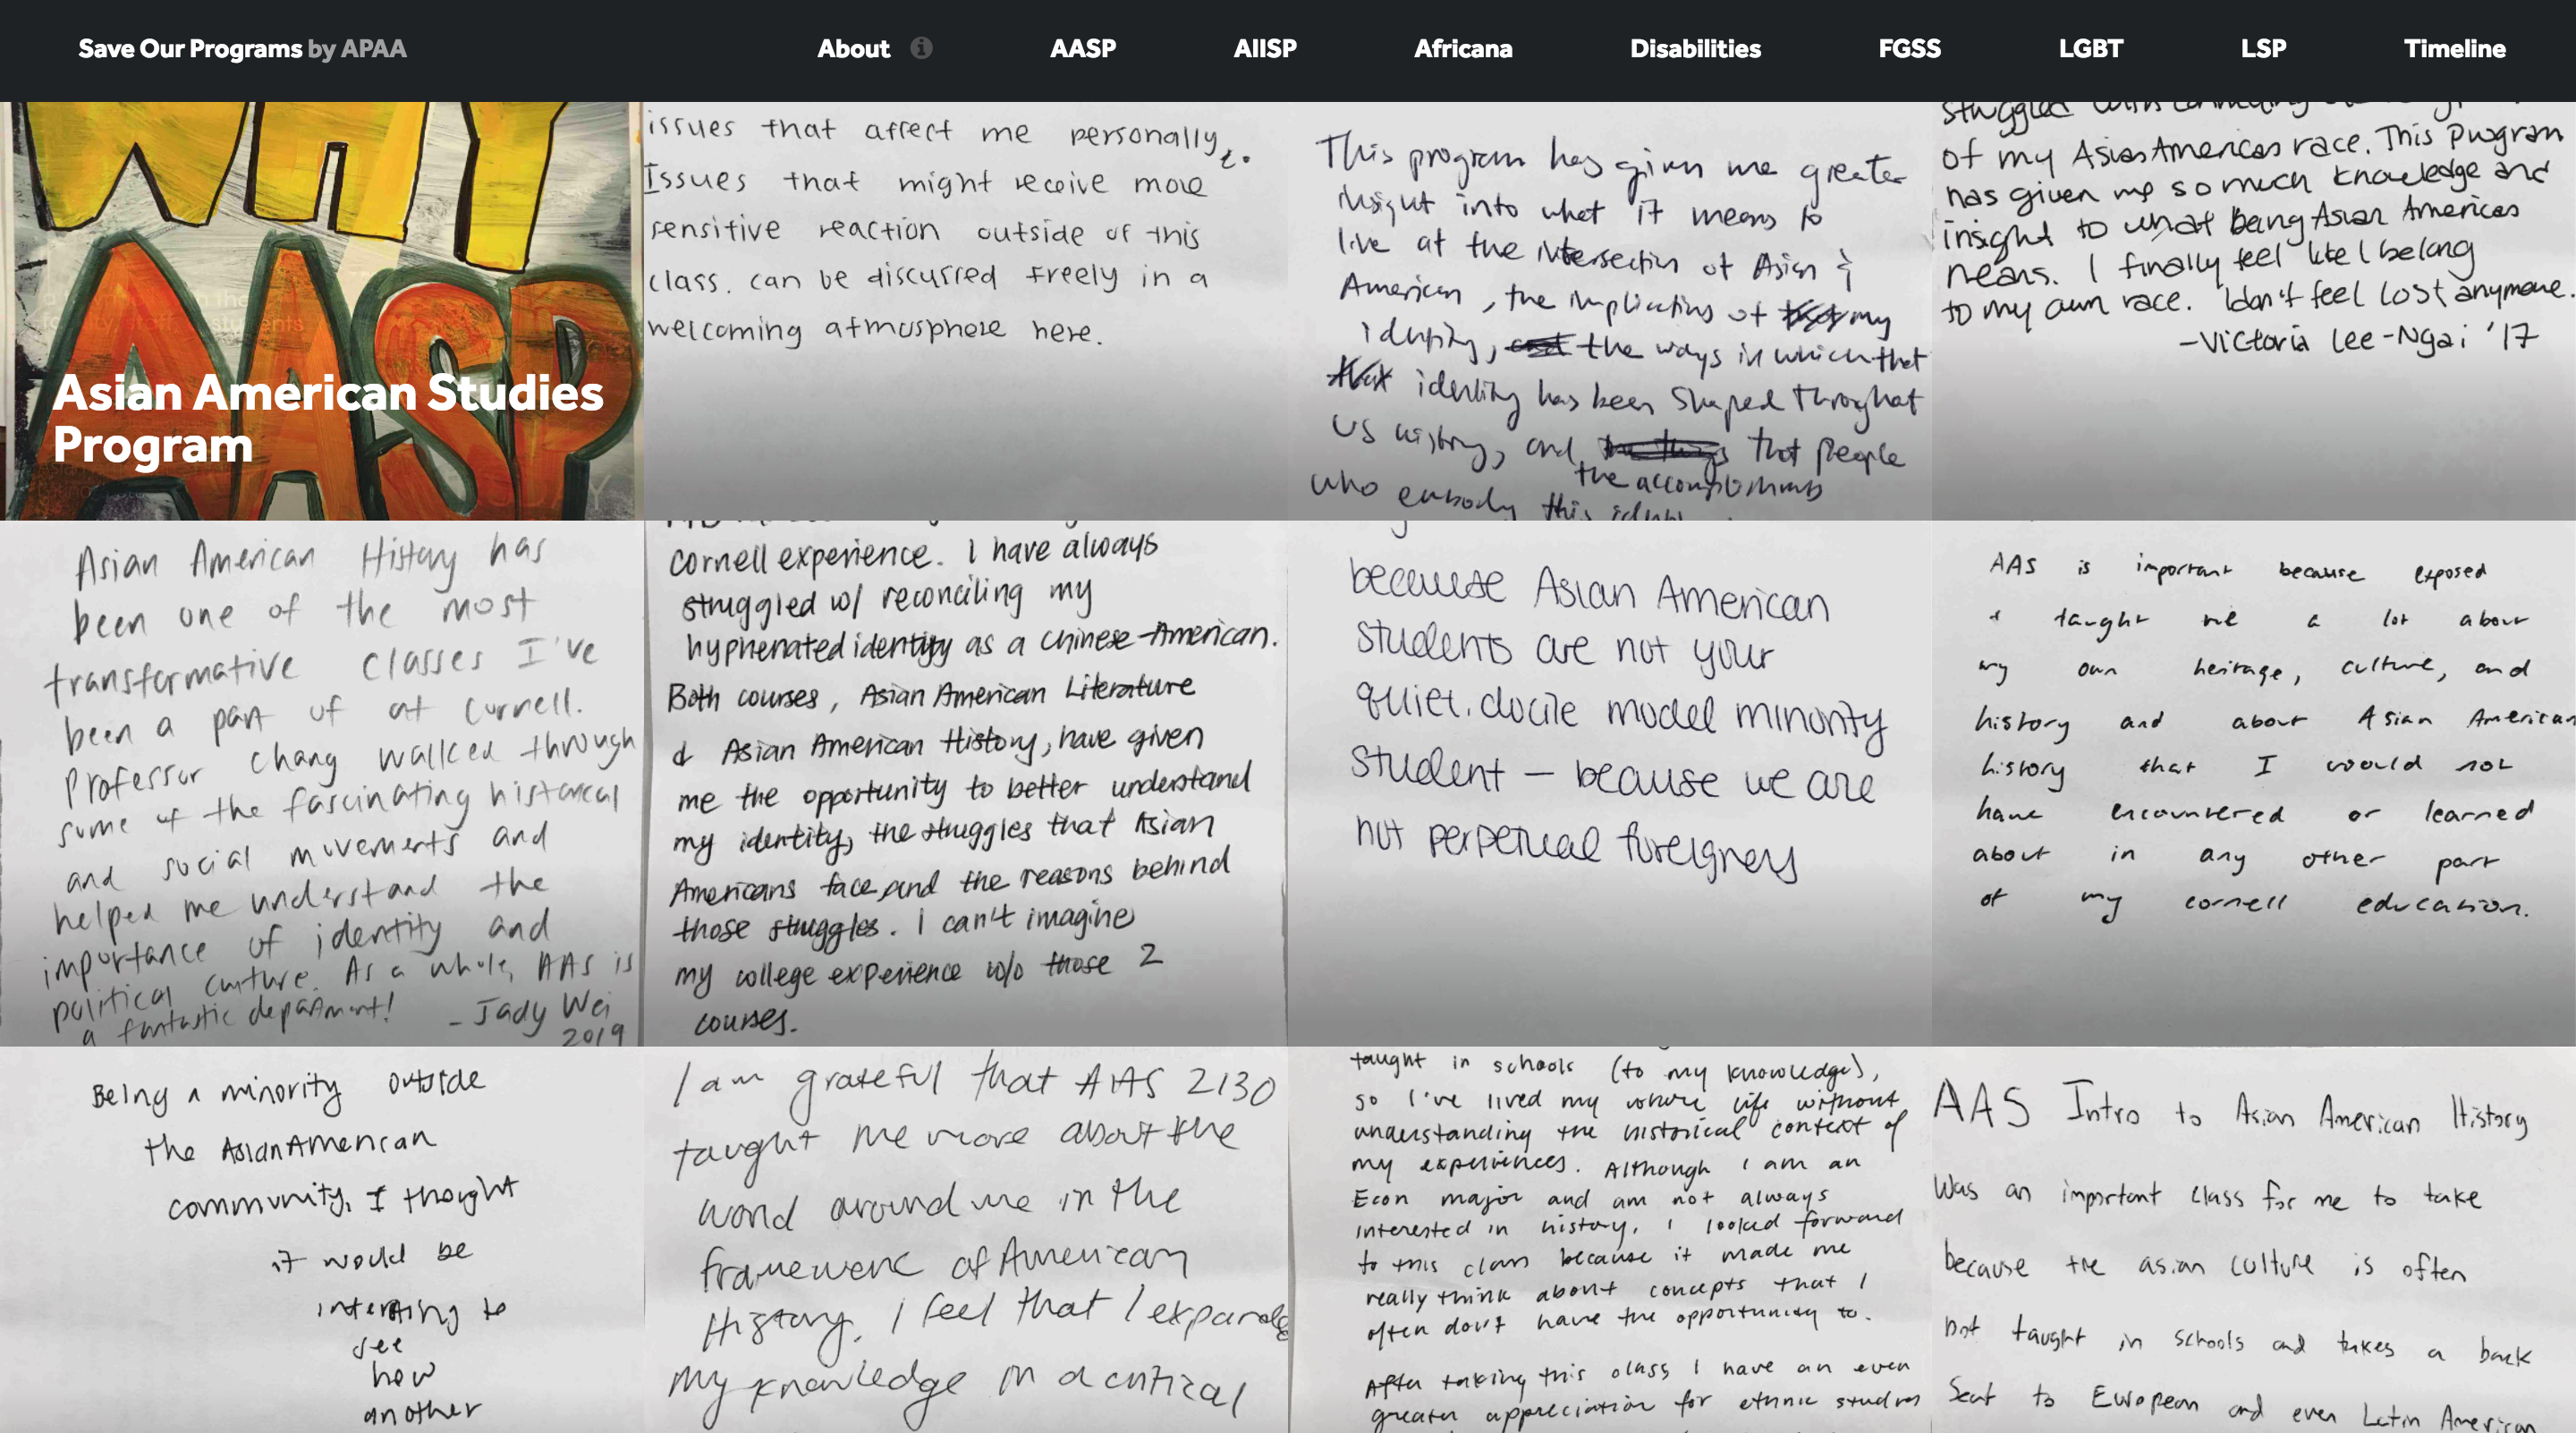 Save Our Programs by APAA
About
AASP
AIISP
Africana
Disabilities
FGSS
LGBT
LSP
Timeline
WHY
AASP
Asian American Studies
Program
issues that affect me personally.
Issues that might receive more
sensitive reaction outside of this
class. can be discussed freely in a
welcoming atmosphere here.
This program has given me greater
insight into what it means to
live at the intersection of Asian &
American, the implications of my
identity, the ways in which that
identity has been shaped throughout
US history, and that people
the accomplishments
who embody this
of my Asian American race. This Program
has given me so much knowledge and
insight to what being Asian American
means. I finally feel like I belong
to my own race. I don't feel lost anymore.
-Victoria Lee-Ngai '17
Asian American History has
been one of the most
transformative classes I've
been a part of at Cornell.
Professor Chang walked through
some of the fascinating historical
and social movements and
helped me understand the
importance of identity and
political culture. As a whole, AAS is
a fantastic department!
- Jady Wei
2019
cornell experience. I have always
struggled w/ reconciling my
hyphenated identity as a Chinese-American.
Both courses, Asian American Literature
& Asian American History, have given
me the opportunity to better understand
my identity, the struggles that Asian
Americans face, and the reasons behind
those struggles. I can't imagine
my college experience w/o those 2
courses.
because Asian American
students are not your
quiet, docile model minority
student – because we are
not perpetual foreigners
AAS is important because exposed
& taught me a lot about
my own heritage, culture, and
history and about Asian American
history that I would not
have encountered or learned
about in any other part
of my cornell education.
Being a minority outside
the Asian American
community, I thought
it would be
see
how
another
I am grateful that AAS 2130
taught me more about the
world around me in the
framework of American
History. I feel that I expanded
my knowledge on a critical
taught in schools (to my knowledge),
so I've lived my whole life without
understanding the historical context of
my experiences. Although I am an
Econ major and am not always
interested in history, I looked forward
to this class because it made me
really think about concepts that I
often don't have the opportunity to.
After taking this class I have an even
greater appreciation for ethnic studies
AAS Intro to Asian American History
Was an important class for me to take
because the asian culture is often
not taught in schools and takes a back
Seat to European and even Latin American